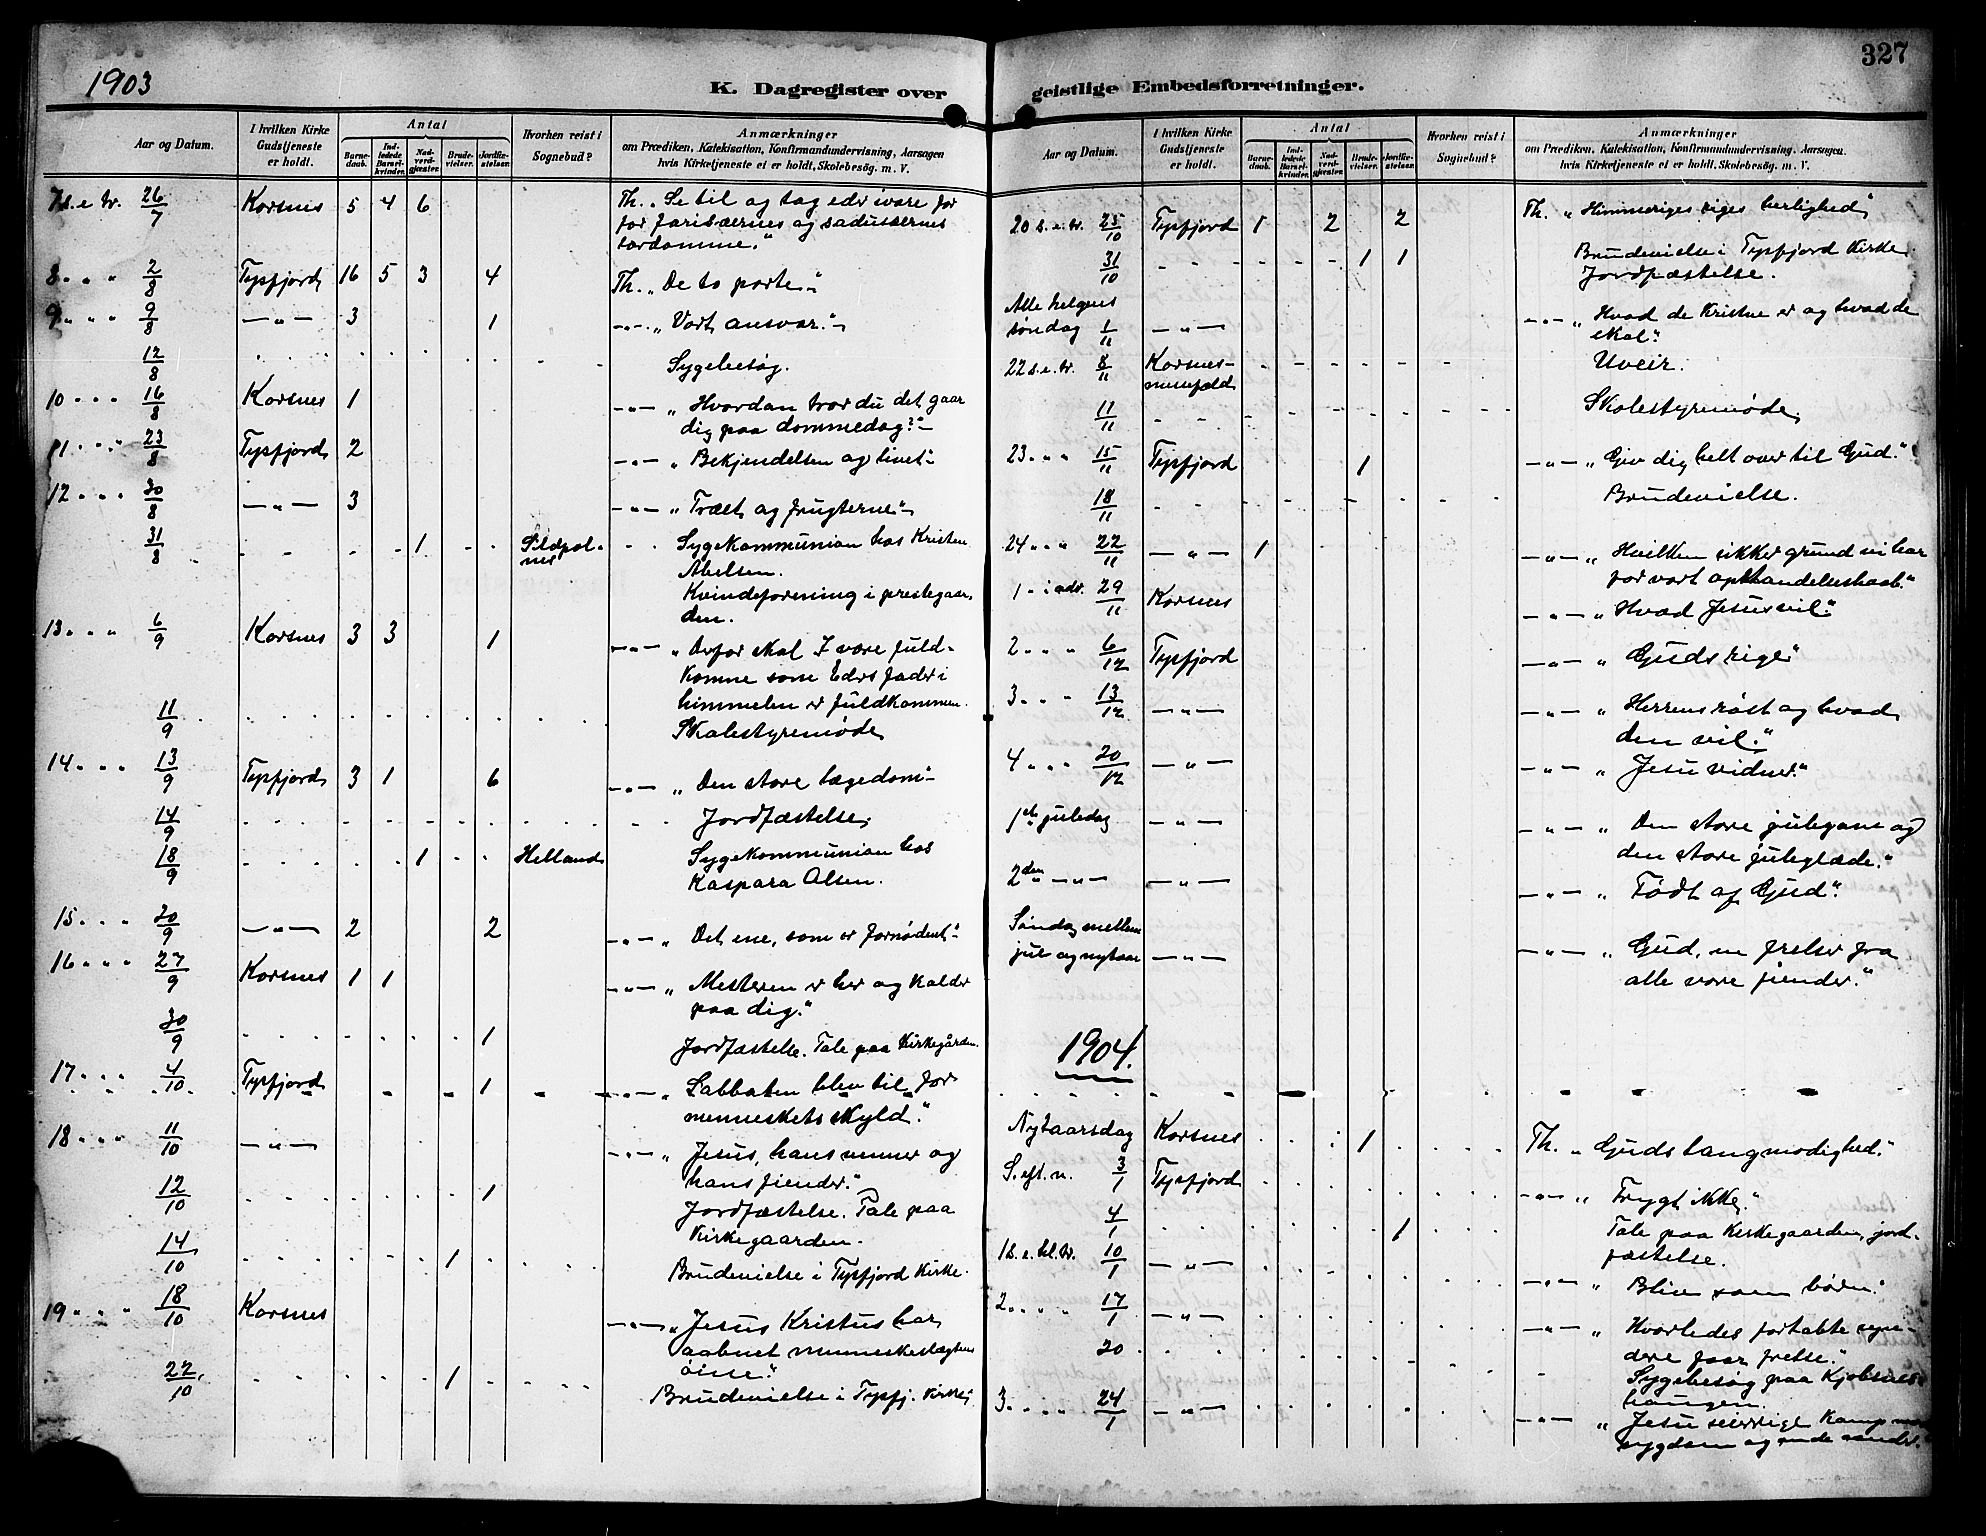 327
1903
K. Dagregister over
Aar og Datum.
I hvilken Kirke Gudstjeneste er holdt.
Antal
Barnedaab.
Indledede Barselkvinder.
Nadverdgjester.
Brudevielser.
Jordfæstelser.
Hvorhen reist i Sognebud?
Anmærkninger
om Prædiken, Katekisation, Konfirmandundervisning, Aarsagen
hvis Kirketjeneste ei er holdt, Skolebesøg. m. V.
7 s. e. tr. 26/7 Korsnes 5 4 6 Th. „Se til og tag eder ivare for
for farisæernes og sadusæernes
surdomme."
8 „ „ 2/8 Tysfjord 16 5 3 4 Th. „De to porte"
9 „ „ „ 9/8 —„— 3 1 —„— „Vort ansvar."
12/8 Sygebesøg.
10 „ „ „ 16/8 Korsnes 1 —„— „Hvordan tror du det gaar
dig paa dommedag?"
11 „ „ „ 23/8 Tysfjord 2 —„— „Bekjendelsen og livet"
12 „ „ „ 30/8 —„— 3 —„— „Træet og frugterne"
31/8 1 Sygekommunion hos Kristen
Abelsen.
Kvindeforening i prestegaar-
den.
13 „ „ „ 6/9 Korsnes 3 3 1 —„— „Derfor skal I være fuld-
komne som Eders fader i
himmelen er fuldkommen.
11/9 Skolestyremøde
14 „ „ „ 13/9 Tysfjord 3 1 6 —„— „Den store lægedom"
14/9 Jordfæstelse.
18/9 1 Helland Sygekommunion hos
Kaspara Olsen.
15 „ „ „ 20/9 —„— 2 2 —„— „Det ene, som er fornødent"
16 „ „ „ 27/9 Korsnes 1 1 —„— „Mesteren er her og kalder
paa dig."
30/9 1 Jordfæstelse. Tale paa kirkegården.
17 „ „ „ 4/10 Tysfjord 1 —„— „Sabbaten blev til for
menneskets skyld."
18 „ „ „ 11/10 —„— —„— „Jesus, hans venner og
hans fiender."
12/10 1 Jordfæstelse. Tale paa
Kirkegaarden.
14/10 1 Brudevielse i Tysfjord Kirke.
19 „ „ „ 18/10 Korsnes —„— „Jesus Kristus har
aabnet menneskeslægtens
øine."
22/10 1 Brudevielse i Tysfj. Kirke
geistlige Embedsforretninger.
Aar og Datum.
I hvilken Kirke Gudstjeneste er holdt.
Antal
Barnedaab.
Indledede Barselkvinder.
Nadverdgjester.
Brudevielser.
Jordfæstelser.
Hvorhen reist i Sognebud?
Anmærkninger
om Prædiken, Katekisation, Konfirmandundervisning, Aarsagen
hvis Kirketjeneste ei er holdt, Skolebesøg. m. V.
20 s. e. tr. 25/10 Tysfjord 1 2 2 Th. „Himmeriges riges herlighed"
31/10 1 1 Brudevielse i Tysfjord Kirke
Jordfæstelse.
Alle helgens
søndag 1/11 —„— —„— „Hvad de Kristne er og hvad de
skal".
22 s. e. tr. 8/11 Korsnes- Uveir.
11/11 Skolestyremøde
23 „ „ 15/11 Tysfjord 1 —„— „Giv dig helt over til Gud."
18/11 Brudevielse.
24 „ „ „ 22/11 —„— 1 —„— „Hvilken sikker grund vi har
for vort
1 „ i adv. 29/11 Korsnes —„— „Hvad Jesus vil".
2 „ „ 6/12 Tysfjord —„— „Guds rige"
3 „ „ „ 13/12 —„— —„— „Herrens røst og hvad
den vil."
4 „ „ „ 20/12 —„— —„— „Jesu vidner."
1ste juledag —„— —„— „Den store julegave og
den store juleglæde."
2den —„— —„— —„— „Født af Gud".
Søndag mellem
jul og nytaar —„— —„— „Gud, en frelser fra
alle vore fiender."
1904.
Nytaarsdag Korsnes 1 Th. „Guds langmodighed."
S. eft. n. 3/1 Tysfjord —„— „Frygt ikke."
4/1 1 Tale paa Kirkegaarden, jord-
fæstelse.
1 s. e. hl. tr. 10/1 —„— —„— „Bliv som børn".
2 „ „ „ 17/1 —„— —„— „Hvorledes fortabte syn-
dere faar frelse."
20 Sygebesøg paa
3 „ „ „ 24/1 —„— —„— „Jesu seierrige Kamp mod
sygdom og onde aander."